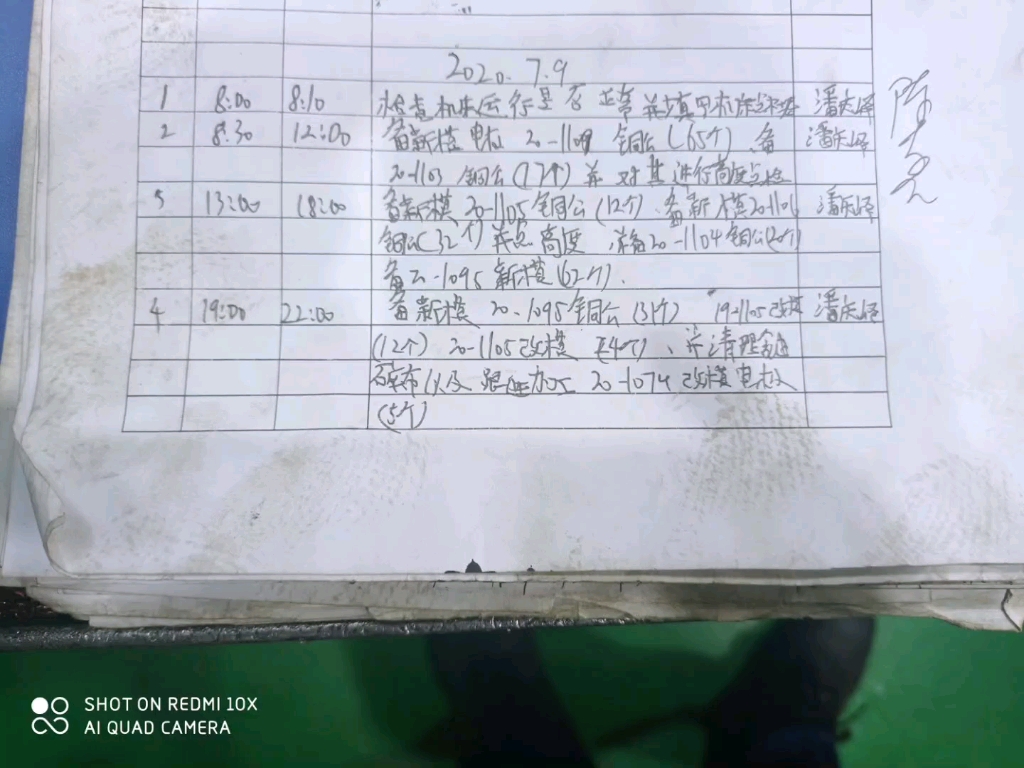 2020.7.9
1 8:00 8:10 检查机床运行是否正常并填写机床点检表 潘庆
2 8:30 12:00 备新模电极 20-1109 铜公(65个)、备 潘庆
20-1103 铜公(12个)并对其进行高度点检
3 13:00 18:00 备新模20-1105铜公(12个)、备新模20-110 潘庆
铜公(32个)并点高度 20-1104铜公(20个)
备20-1095新模(62个).
4 19:00 22:00 备新模 20-1095铜公(31个) 19-1105改模 潘庆
(12个) 20-1105改模 (4个)、并清理
碎布以及跟进加工 20-1074改模电极
(5个)
SHOT ON REDMI 10X
AI QUAD CAMERA